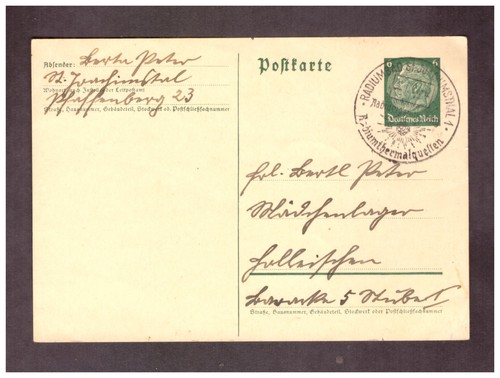 Absender: Berta Peter
St. Joachimstal
Wohnort, auch Zustell- oder Leitpostamt
Pfaffenberg 23
Straße, Hausnummer, Gebäudeteil, Stockwerk od. Postschließfachnummer
Postkarte
6 6
Deutsches Reich
RADIUMBAD ST. JOACHIMSTHAL 1
Radiumthermalquellen
Frl. Bertl Peter
Mädchenlager
Holleischen
Baracke 5 Stube 1
Straße, Hausnummer, Gebäudeteil, Stockwerk oder Postschließfachnummer